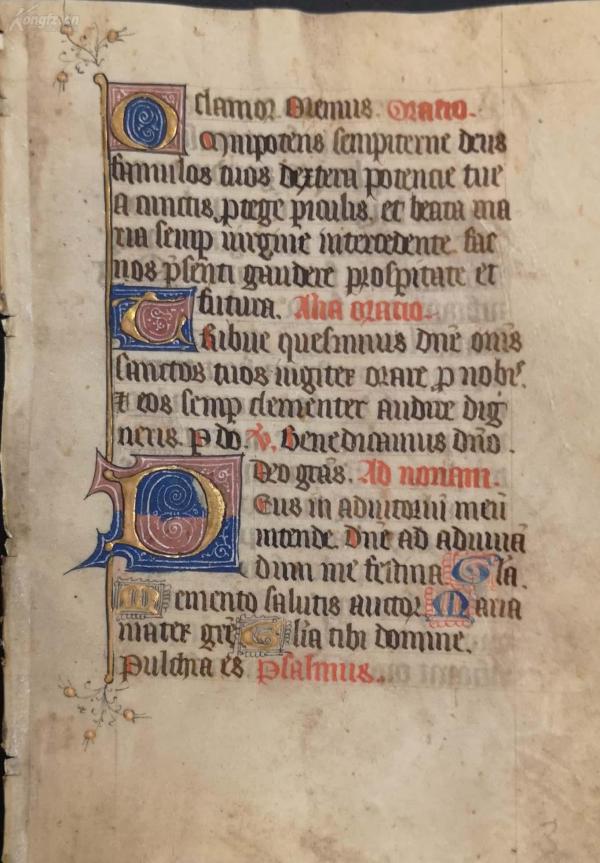 Kongfz.cn
clamor. Oremus. Oratio.
Omnipotens sempiterne deus
famulos tuos dextera potencie tue
a cunctis ꝓtege piculis. et beata ma
ria semp uirgine intercedente. fac
nos p̄senti gaudere ꝓspitate et
futura. Alia oratio.
Tribue quesumus dn̄e om̄s
sanctos tuos iugiter orare ꝓ nobꝭ.
⁊ eos semp clementer audire dig
neris. P do. V. Benedicamus dn̄o.
Deo gr̄as. Ad nonam.
Deus in adiutoriū meū
intende. Dn̄e ad adiuuā
dum me festina Gl̄a.
Memento salutis auctor Maria
mater gr̄e Gl̄ia tibi domine.
Pulchra es Psalmus.